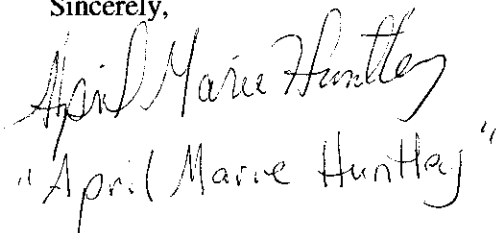 Sincerely,
April Marie Huntley
"April Marie Huntley"